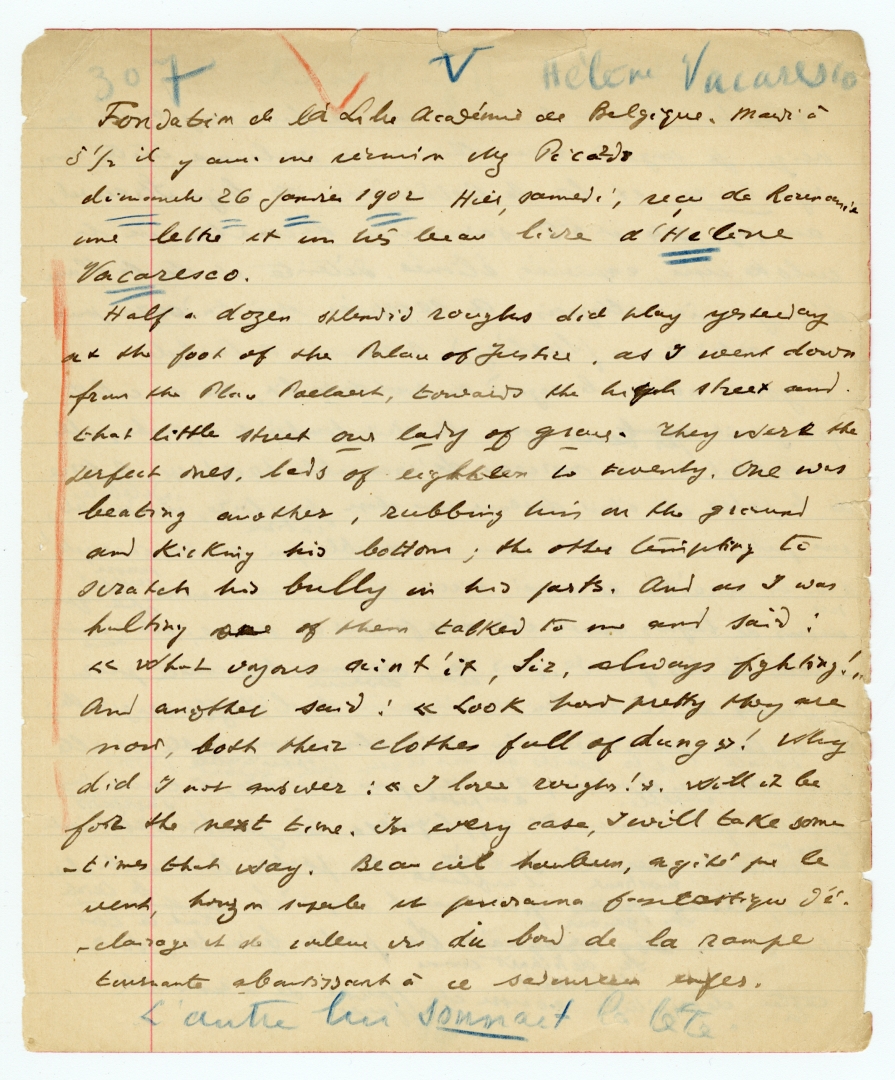 307 V Hélène Vacaresco
Fondation de la Libre Académie de Belgique. Mardi à
5 1/2 il y aura une réunion chez Picard
dimanche 26 janvier 1902 Hier, samedi, reçu de Roumanie
une lettre et un très beau livre d'Hélène
Vacaresco.
Half a dozen splendid roughs did play yesterday
at the foot of the Palau of Justice, as I went down
from the Place Poelaert, towards the high street and
that little street our lady of grace. They were the
perfect ones, lads of eighteen to twenty. One was
beating another, rubbing him on the ground
and kicking his bottom; the other tempting to
scratch his bully in his parts. And as I was
halting one of them talked to me and said:
« What voyous aint'it, Sir, always fighting!»
And another said: « Look how pretty they are
now, both their clothes full of dung»! Why
did I not answer: « I love roughs!». Will it be
for the next time. In every case, I will take some
-times that way. Beau ciel houleux, agité par le
vent, horizon superbe et panorama fantastique d'é-
-clairage et de couleur vu du bord de la rampe
tournante aboutissant à ce savoureux enfer.
L'autre lui sonnait la tête